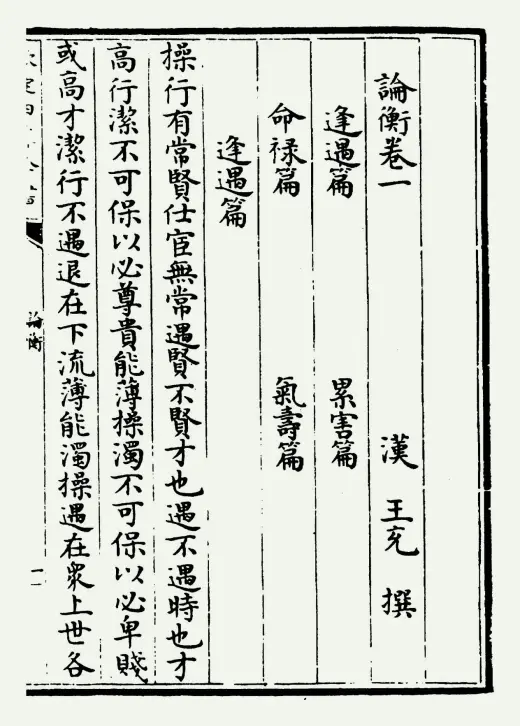 論衡卷一 漢 王充 撰
逢遇篇 累害篇
命禄篇 氣壽篇
逢遇篇
操行有常賢仕宦無常遇賢不賢才也遇不遇時也才
高行潔不可保以必尊貴能薄操濁不可保以必卑賤
或高才潔行不遇退在下流薄能濁操遇在衆上世各
論衡